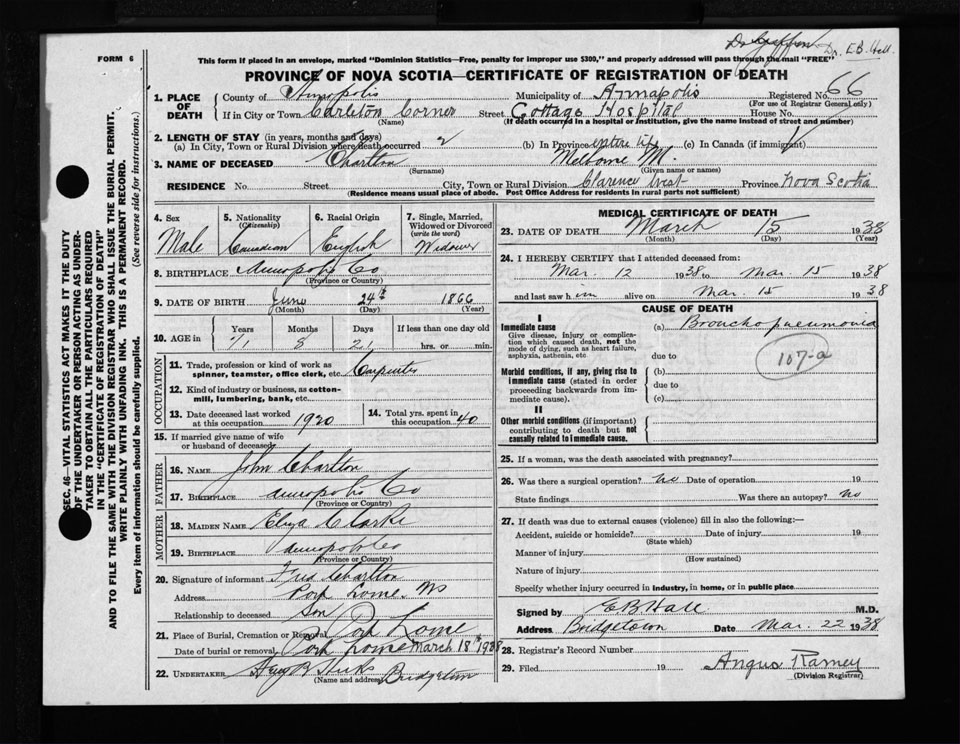 Dr. E.B. Hall.
FORM 6
This form if placed in an envelope, marked "Dominion Statistics—Free, penalty for improper use $300," and properly addressed will pass through the mail "FREE"
PROVINCE OF NOVA SCOTIA—CERTIFICATE OF REGISTRATION OF DEATH
1. PLACE OF DEATH
County of Annapolis Municipality of Annapolis Registered No. 66
(For use of Registrar General only)
If in City or Town Carleton Corner Street Cottage Hospital House No.
(Name) (If death occurred in a hospital or institution, give the name instead of street and number)
2. LENGTH OF STAY (in years, months and days)
(a) In City, Town or Rural Division where death occurred 2 (b) In Province entire life (c) In Canada (if immigrant)
3. NAME OF DECEASED Charlton Melborne M.
(Surname) (Given name or names)
RESIDENCE No. Street City, Town or Rural Division Clarence West Province Nova Scotia
(Residence means usual place of abode. Post Office Address for residents in rural parts not sufficient)
4. Sex Male
5. Nationality (Citizenship) Canadian
6. Racial Origin English
7. Single, Married, Widowed or Divorced (write the word) Widower
8. BIRTHPLACE Annapolis Co
(Province or Country)
9. DATE OF BIRTH June 24th 1866
(Month) (Day) (Year)
10. AGE in Years Months Days If less than one day old
71 8 21 hrs. or min.
OCCUPATION
11. Trade, profession or kind of work as spinner, teamster, office clerk, etc. Carpenter
12. Kind of industry or business, as cotton-mill, lumbering, bank, etc.
13. Date deceased last worked at this occupation 1920
14. Total yrs. spent in this occupation 40
15. If married give name of wife or husband of deceased
FATHER
16. NAME John Charlton
17. BIRTHPLACE Annapolis Co
(Province or Country)
MOTHER
18. MAIDEN NAME Eliza Clarke
19. BIRTHPLACE Annapolis Co
(Province or Country)
20. Signature of informant Fred Charlton
Address Port Lorne. NS
Relationship to deceased Son
21. Place of Burial, Cremation or Removal Port Lorne
Date of burial or removal Port Lorne March 18th 1938
22. UNDERTAKER Hicks Bridgetown
(Name and address)
MEDICAL CERTIFICATE OF DEATH
23. DATE OF DEATH March 15 1938
(Month) (Day) (Year)
24. I HEREBY CERTIFY that I attended deceased from:
Mar. 12 1938 to Mar 15 1938
and last saw him alive on Mar. 15 1938
CAUSE OF DEATH
I
Immediate cause
Give disease, injury or complication which caused death, not the mode of dying, such as heart failure, asphyxia, asthenia, etc
(a) Bronchopneumonia
due to 107-a
Morbid conditions, if any, giving rise to immediate cause (stated in order proceeding backwards from immediate cause).
(b)
due to
(c)
II
Other morbid conditions (if important) contributing to death but not causally related to immediate cause.
25. If a woman, was the death associated with pregnancy?
26. Was there a surgical operation? no Date of operation 19
State findings Was there an autopsy? no
27. If death was due to external causes (violence) fill in also the following:—
Accident, suicide or homicide? Date of injury 19
(State which)
Manner of injury
(How sustained)
Nature of injury
Specify whether injury occurred in industry, in home, or in public place
Signed by E B Hall M.D.
Address Bridgetown Date Mar. 22 1938
28. Registrar's Record Number
29. Filed 19 Angus Ramey
(Division Registrar)
SEC. 46—VITAL STATISTICS ACT MAKES IT THE DUTY
OF THE UNDERTAKER OR PERSON ACTING AS UNDER-
TAKER TO OBTAIN ALL THE PARTICULARS REQUIRED
IN THE "CERTIFICATE OF REGISTRATION OF DEATH"
AND TO FILE THE SAME WITH THE DIVISION REGISTRAR WHO SHALL ISSUE THE BURIAL PERMIT.
WRITE PLAINLY WITH UNFADING INK. THIS IS A PERMANENT RECORD.
Every item of information should be carefully supplied. (See reverse side for instructions.)